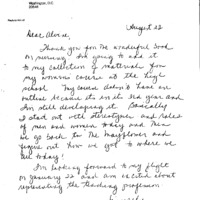 Washington, D.C.
August 22
Dear Alone,
Thank you for the wonderful book
on nursing. I'm going to add it
to my collection of material for
my womans course at the high
school. My course doesn't have an
outline because its in its 3rd year and
I'm still developing it. Basically
I start out with stereotypes and roles
of men and women today and then
we go back to The Mayflower and
figure out how we got to where we
are today!
I'm looking forward to my flight
on January 22 and am excited about
representing the teaching profession.